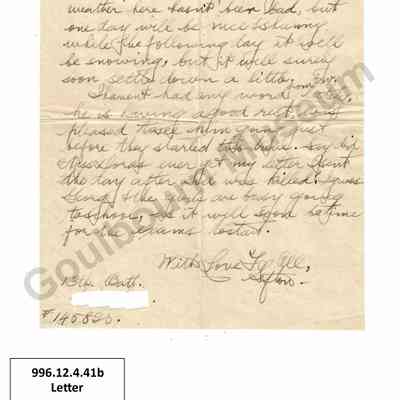 weather here hasn't been bad, but
one day will be nice & sunny
while the following day it will
be snowing, but it will surely
soon settle down a little.
I haven't had any word from
he is having a good rest. Was
pleased to see him just
before they started this drive. Say did
ever get my letter I sent
the day after was killed. I guess
& the are busy going
to school, as it will soon be time
for the exams to start.
With Love To All,
Batt.
Goulbourn Museum
996.12.4.41b
Letter